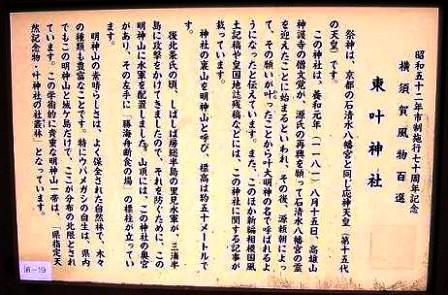 昭和五十二年市制施行七十周年記念
横須賀風物百選
東叶神社
祭神は、京都の石清水八幡宮と同じ応神天皇(第十五代
の天皇)です。
この神社は、養和元年(一一八一)八月十五日、高雄山
神護寺の僧文覚が、源氏の再興を願って石清水八幡宮の霊
を迎えたことに始まるといわれ、その後、源頼朝によっ
て、その願いが叶ったことから叶大明神の名で呼ばれるよ
うになったと伝えています。また、このほか新編相模国風
土記稿や皇国地誌残稿などには、この神社に関する記事が
載っています。
神社の裏山を明神山と呼び、標高は約五十メートルで
す。
後北条氏の頃、しばしば房総半島の里見水軍が、三浦半
島に攻撃をかけてきましたので、それを防ぐために、この
明神山に水軍を配置しました。山頂には、この神社の奥宮
があり、その左手に「勝海舟断食の場」の標柱が立ってい
ます。
明神山の素晴らしさは、よく保全された自然林で、木々
の種類も豊富なことです。特にウバメガシの自生は、県内
でもこの明神山と城ケ島だけで、ここが分布の北限とされ
ています。この学術的に貴重な明神山一帯は、「県指定天
然記念物・叶神社の社叢林」となっています。
浦-19